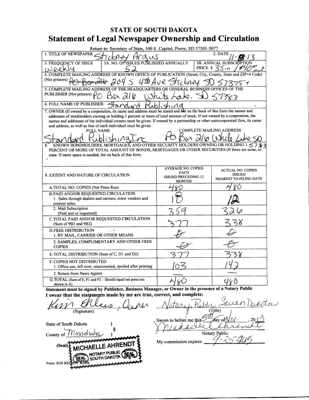 STATE OF SOUTH DAKOTA
Statement of Legal Newspaper Ownership and Circulation
Return to: Secretary of State, 500 E. Capitol, Pierre, SD 57501-5077
1. TITLE OF NEWSPAPER Stickney Argus 2. DATE
3. FREQUENCY OF ISSUE weekly 3A. NO. OF ISSUES PUBLISHED ANNUALLY 52 3B. ANNUAL SUBSCRIPTION PRICE $
4. COMPLETE MAILING ADDRESS OF KNOWN OFFICE OF PUBLICATION (Street, City, County, State and ZIP+4 Code)
(Not printers) 204 S 4th Ave Stickney SD 57375
5. COMPLETE MAILING ADDRESS OF THE HEADQUARTERS OR GENERAL BUSINESS OFFICES OF THE
PUBLISHER (Not printer) PO Box 216 White Lake, SD 57383
6. FULL NAME OF PUBLISHER: Standard Publishing
7. OWNER (If owned by a corporation, its name and address must be stated and also on the back of this form the names and
addresses of stockholders owning or holding 1 percent or more of total amount of stock. If not owned by a corporation, the
names and addresses of the individual owners must be given. If owned by a partnership or other unincorporated firm, its name
and address, as well as that of each individual must be given.
FULL NAME COMPLETE MAILING ADDRESS
Standard Publishing Inc PO Box 216 White Lake SD
8. KNOWN BONDHOLDERS, MORTGAGEES, AND OTHER SECURITY HOLDERS OWNING OR HOLDING 1
PERCENT OR MORE OF TOTAL AMOUNT OF BONDS, MORTGAGES OR OTHER SECURITIES (If there are none, so
state. If more space is needed, list on back of this form.
9. EXTENT AND NATURE OF CIRCULATION
AVERAGE NO. COPIES EACH ISSUED PRECEDING 12 MONTHS
ACTUAL NO. COPIES ISSUED NEAREST TO FILING DATE
A. TOTAL NO. COPIES (Net Press Run) 480 480
B. PAID AND/OR REQUESTED CIRCULATION
1. Sales through dealers and carriers, street vendors and
counter sales. 18 12
2. Mail Subscription
(Paid and or requested) 359 326
C. TOTAL PAID AND/OR REQUESTED CIRCULATION
(Sum of 9B1 and 9B2) 377 338
D. FREE DISTRIBUTION
1. BY MAIL, CARRIER OR OTHER MEANS
2. SAMPLES, COMPLIMENTARY AND OTHER FREE
COPIES
E. TOTAL DISTRIBUTION (Sum of C, D1 and D2) 377 338
F. COPIES NOT DISTRIBUTED
1. Office use, left over, unaccounted, spoiled after printing 103 142
2. Return from News Agents
G. TOTAL (Sum of E, F1 and F2 - Should equal net press run
shown in A) 480 480
Statement must be signed by Publisher, Business Manager, or Owner in the presence of a Notary Public
I swear that the statements made by me are true, correct, and complete:
Owner Notary Public South Dakota
(Signature) (Title)
State of South Dakota ) Sworn to before me this day of
County of ) Notary Public
(Seal) MICHAELLE AHRENDT My commission expires:
NOTARY PUBLIC
SOUTH DAKOTA
SEAL SEAL